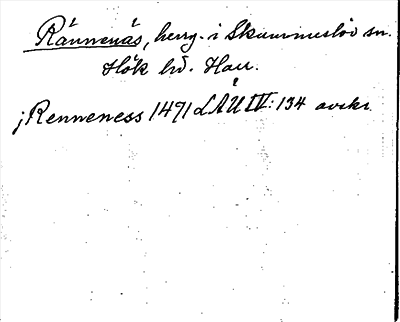 Rännenäs, herrg. i Skummeslöv sn.
Hök hd. Hall.
j Renneness 1491 LÄU IV: 134 avskr